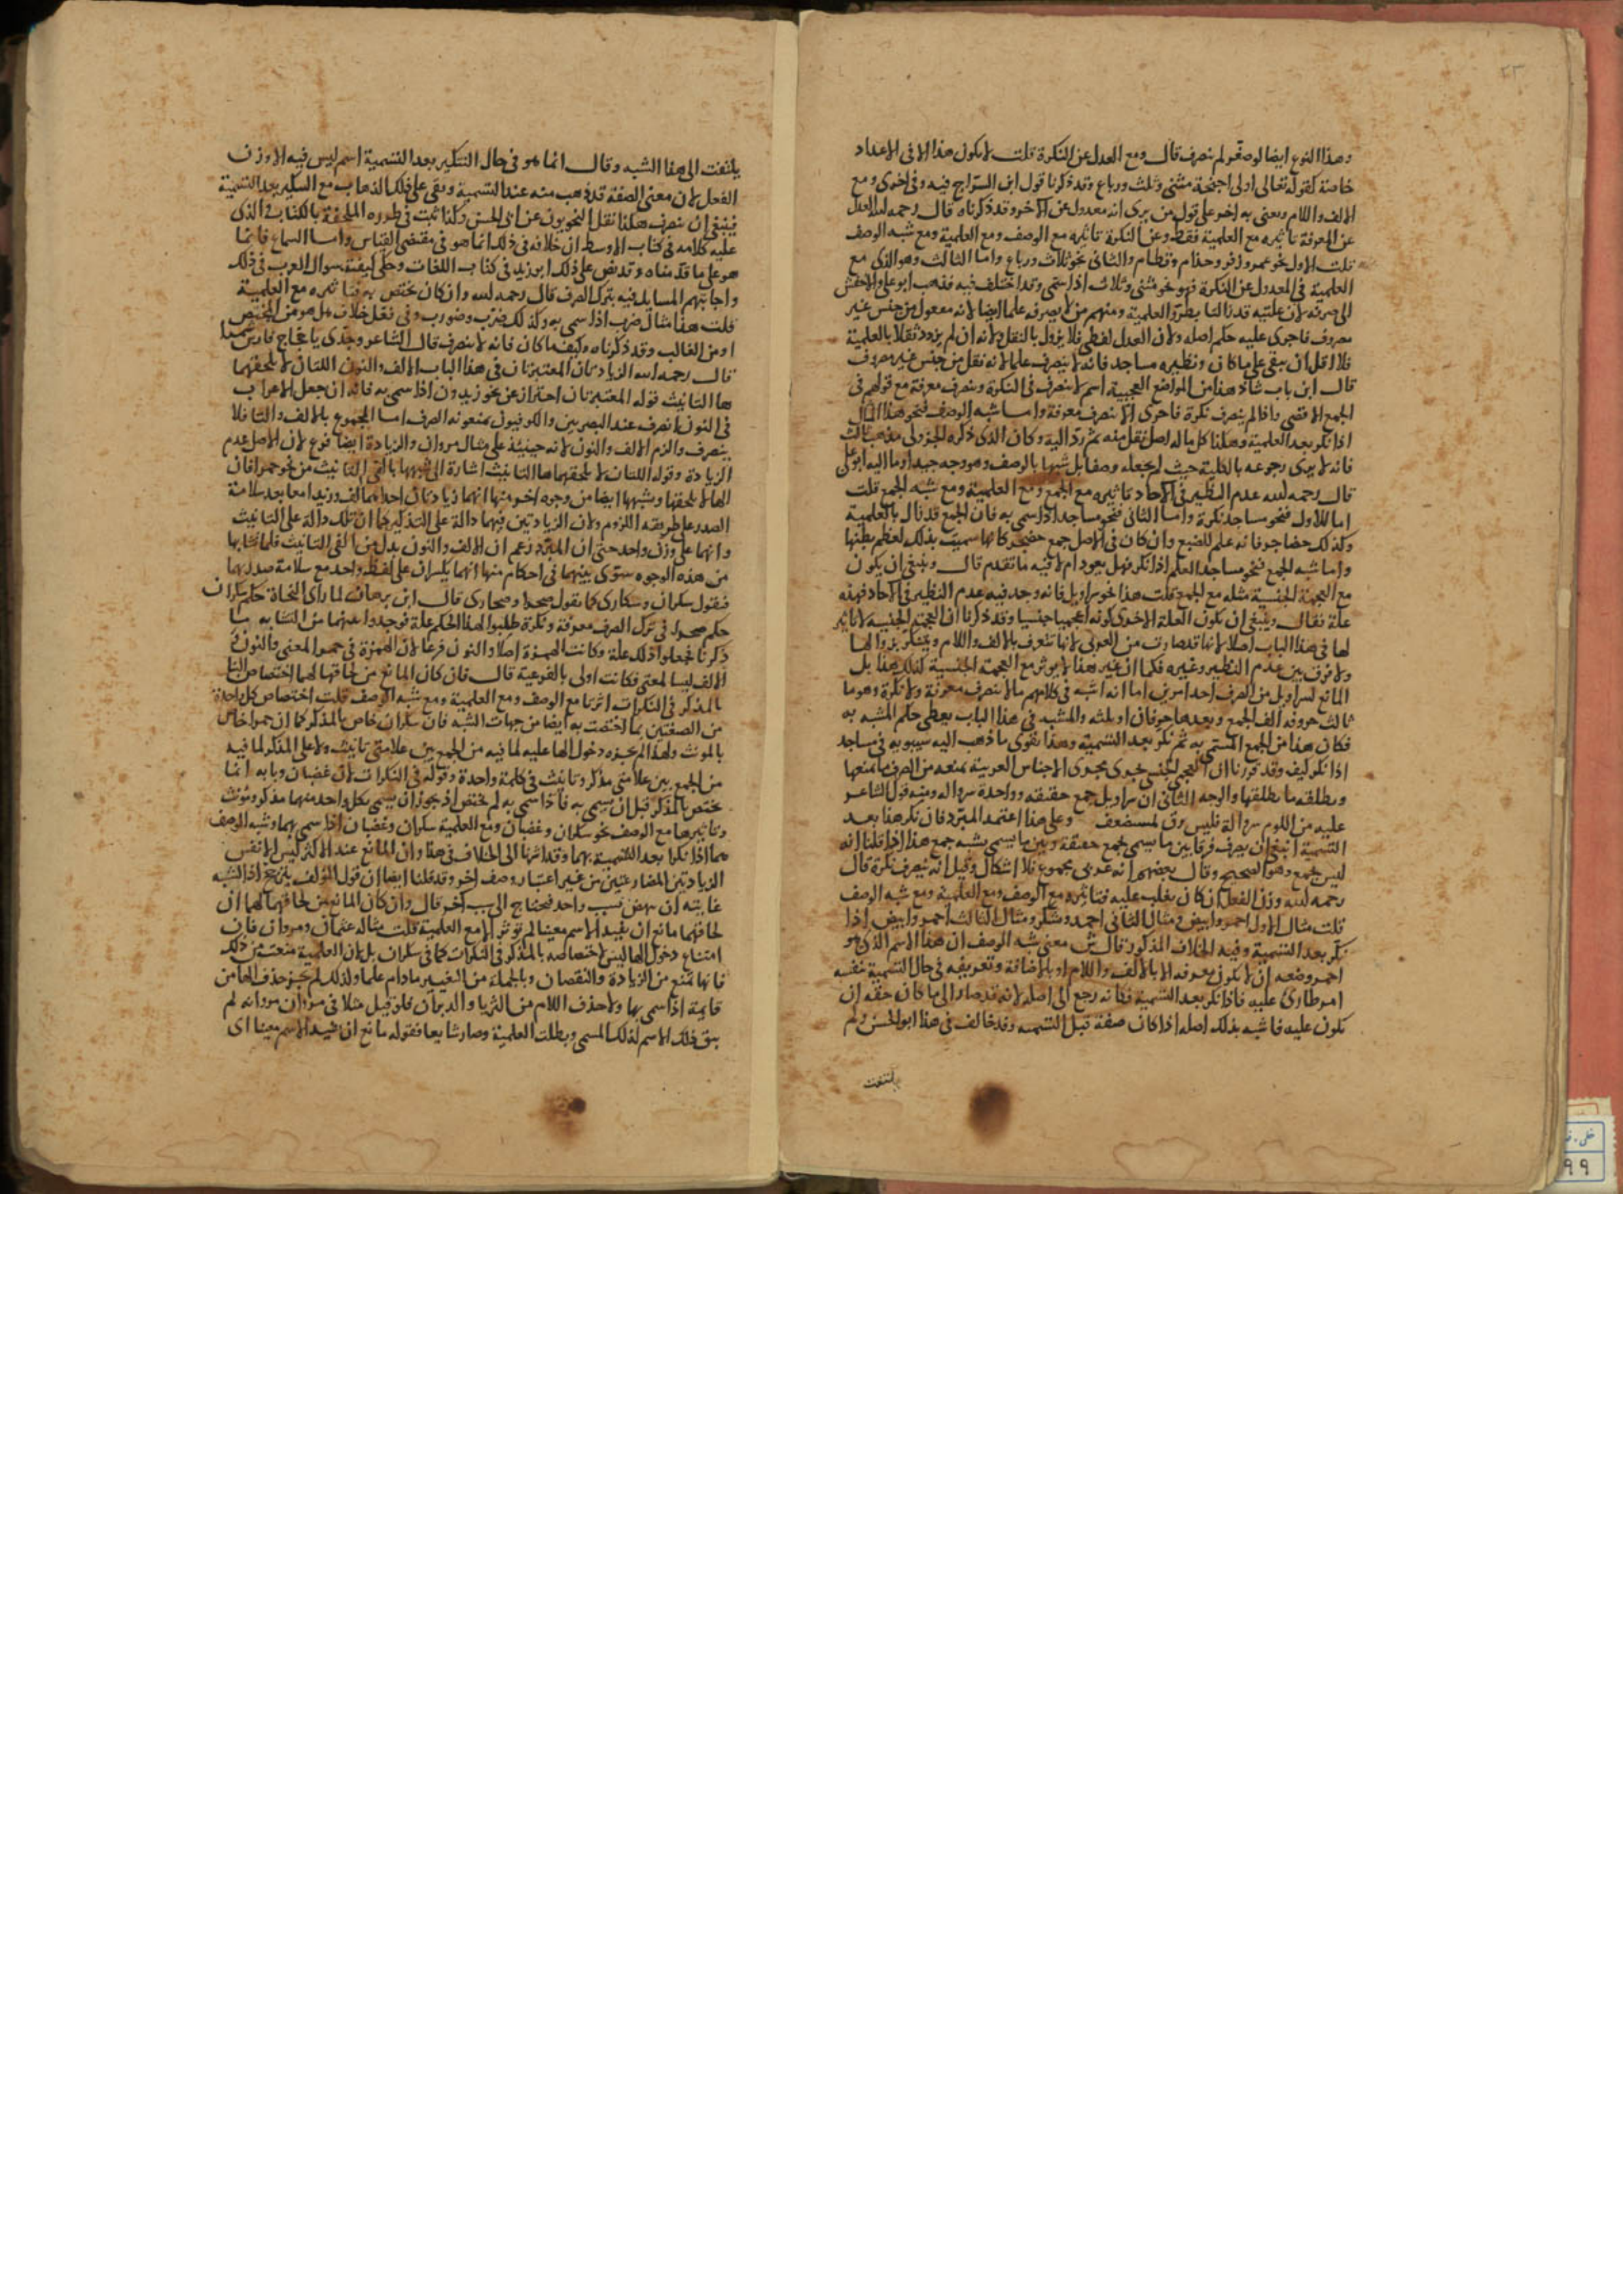 وهذا النوع ايضا لو صغر لم ينصرف قال ومع العدل عن النكرة قلت لا يكون هذا الا في الاعداد
خاصة كقوله تعالى اولى اجنحة مثنى وثلث ورباع وقد ذكرنا قول ابن السراج فيه وفي اخرى ومع
الالف واللام ويعنى به اخر على قول من يرى انه معدول عن الآخر وقد ذكرناه قال رحمه الله العدل
عن المعرفة تاثيره مع العلمية فقط وعن النكرة تاثيره مع الوصف ومع العلمية ومع شبه الوصف
قلت الاول نحو عمر وزفر وحذام وقطام والثاني نحو ثلاث ورباع واما الثالث وهو الذي مع
العلمية في المعدول عن النكرة فهو نحو مثنى وثلاث اذا سمي وقد اختلف فيه فذهب ابو على والاخفش
الى صرفه لان علتيه قد زالتا بطرو العلمية ومنهم من لا يصرفه علما ايضا لانه معدول من جنس غير
مصروف فاجرى عليه حكم اصله ولان العدل لفظي فلا يزول بالنقل ولانه ان لم يزود ثقلا بالعلمية
فلا اقل ان يبقى على ما كان ونظيره مساجد فانه لا ينصرف علما لانه نقل من جنس غير مصروف
قال ابن باب شاذ هذا من المواضع العجيبة اسم لا ينصرف في النكرة وينصرف معرفة مع قولهم في
الجمع الاقصى واذا لم ينصرف نكرة فاحرى الا ينصرف معرفة واما شبه الوصف فنحو هذا المثال
اذا نكر بعد العلمية وهكذا كل ما له اصل نقل منه ثم رد اليه وكان الذي ذكره الجزولي مذهب ثالث
فانه لا يرى رجوعه بالكلية حيث لم يجعله وصفا بل شبيها بالوصف وهو وجه جيد اوما اليه ابو علي
قال رحمه الله عدم النظير في الآحاد تاثيره مع الجمع ومع العلمية ومع شبه الجمع قلت
اما الاول فنحو مساجد نكرة واما الثاني فنحو مساجد اذا سمي به فان الجمع قد زال بالعلمية
وكذلك حضاجر فانه علم للضبع وان كان في الاصل جمع حضجر كانها سميت بذلك لعظم بطنها
واما شبه الجمع فنحو مساجد العلم اذا نكر فهل يعود ام لا فيه ما تقدم قال وينبغي ان يكون
مع العجمة الجنسية مثله مع الجمع قلت هذا نحو سراويل فانه وجد فيه عدم النظير في الآحاد فهذه
علة فقال وينبغي ان تكون العلة الاخرى كونه اعجميا جنسيا وقد ذكرنا ان العجمة الجنسية لا تاثير
لها في هذا الباب اصلا لانها قد صارت من العربي لانها تتعرف بالالف واللام ويتنكر بزوالها
ولا فرق بين عدم النظير وغيره فكما ان غير هذا لا يوثر مع العجمة الجنسية كذلك هذا بل
المانع لسراويل من الصرف احد امرين اما انه اشبه في كلامهم ما لا ينصرف معرفة ولا نكرة وهو ما
ثالث حروفه الف الجمع وبعدها حرفان او ثلثة والمشبه في هذا الباب يعطى حكم المشبه به
فكان هذا من الجمع المسمى به ثم نكر بعد التسمية وهذا يقوى ما ذهب اليه سيبويه في مساجد
اذا نكر كيف وقد قررنا ان العجمي الجنسي يجري مجرى الاجناس العربية يمنعه من الصرف ما يمنعها
ويطلقه ما يطلقها والوجه الثاني ان سراويل جمع حقيقه وواحدة سرواله ومنه قول الشاعر
عليه من اللوم سروالة فليس يرق لمستضعف وعلى هذا اعتمد المبرد فان نكر هذا بعد
التسمية انبغى ان يصرف فرقا بين ما يسمى بجمع حقيقة وبين ما يسمى بشبه جمع هذا اذا قلنا انه
ليس بجمع وهو الصحيح وقال بعضهم انه عربي مجموع فلا اشكال وقيل انه يصرف نكرة قال
رحمه الله وزن الفعل ان كان يغلب عليه فتاثيره مع الوصف ومع العلمية ومع شبه الوصف
قلت مثال الاول احمر وابيض ومثال الثاني احمد ويشكر ومثال الثالث احمر وابيض اذا
نكر بعد التسمية وفيه الخلاف المذكور قال معنى شبه الوصف ان هذا الاسم الذي هو
احمر وضعه ان لا يكون تعريفه الا بالالف واللام او بالاضافة وتعريفه في حال التسمية بنفسه
امر طارئ عليه فاذا نكر بعد التسمية فكانه رجع الى اصله لانه قد صار الى ما كان حقه ان
يكون عليه فاشبه بذلك اصله اذا كان صفة قبل التسمية وقد خالف في هذا ابو الحسن ولم
يلتفت
يلتفت الى هذا الشبه وقال انما هو في حال التنكير بعد التسمية اسم ليس فيه الا وزن
الفعل لان معنى الصفة قد ذهب منه عند التسمية وبقى على ذلك الذهاب مع التنكير بعد التسمية
فينبغي ان ينصرف هكذا نقل النحويون عن ابي الحسن وكذا ثبت في طرره الملحقة بالكتاب والذي
عليه كلامه في كتاب الاوسط ان خلافه في ذلك انما هو في مقتضى القياس واما السماع فانما
هو على ما قدمناه وقد نص على ذلك ابو زيد في كتاب اللغات وحكى كيفية سوال العرب في ذلك
واجابتهم المسايل فيه بترك الصرف قال رحمه الله وان كان يختص به فتاثيره مع العلمية
قلت هذا مثال ضرب اذا سمي به وكذلك ضرب وضورب وفي فعل خلاف هل هو من المختص
او من الغالب وقد ذكرناه وكيف ما كان فانه لا ينصرف قال الشاعر وجدي يا حجاج فارس شمرا
قال رحمه الله الزيادتان المعتبرتان في هذا الباب الالف والنون اللتان لا تلحقهما
ها التانيث قوله المعتبرتان احترازا عن نحو زيدون اذا سمي به فانه ان جعل الاعراب
في النون انصرف عند البصريين والكوفيون يمنعونه الصرف اما المجموع بالالف والتا فلا
ينصرف والزم الالف والنون لانه حينئذ على مثال مروان والزيادة ايضا فرع لان الاصل عدم
الزيادة وقوله اللتان لا تلحقهما ها التانيث اشارة الى شبهها بالفي التانيث من نحو حمرا فان
الها لا تلحقها وشبهها ايضا من وجوه اخر منها انهما زيادتان احداهما الف وزيدا معا بعد سلامة
الصدر على طريقه اللزوم ولان الزيادتين فيهما دالة على التذكير كما ان تلك دالة على التانيث
وانهما على وزن واحد حتى ان المبرد زعم ان الالف والنون بدل من الفي التانيث فلما تشابها
من هذه الوجوه سوى بينهما في احكام منها انهما يكسران على لفظ واحد مع سلامة صدرهما
فنقول سكران وسكارى كما نقول صحرا وصحارى قال ابن برهان لما راى النحاة حكم سكران
حكم صحرا في ترك الصرف معرفة ونكرة طلبوا لهذا الحكم علة فوجدوا بينهما من التشابه ما
ذكرنا فجعلوا ذلك علة وكانت الهمزة اصلا والنون فرعا لان الهمزة في حمرا لمعنى والنون
الالف ليسا لمعنى فكانت اولى بالفرعية قال فان كان المانع من لحاقها لهما اختصاص البنا
بالمذكر في النكرات اثرتا مع الوصف ومع العلمية ومع شبه الوصف قلت اختصاص كل واحدة
من الصفتين بما اختصت به ايضا من جهات الشبه فان سكران خاص بالمذكر كما ان حمرا خاص
بالمونث ولهذا لم يجيزه دخول الها عليه لما فيه من الجمع بين علامتي تانيث ولا على المذكر لما فيه
من الجمع بين علامتي مذكر وتانيث في كلمة واحدة وقوله في النكرات لان غضبان وبابه انما
يختص بالمذكر قبل ان يسمى به فاذا سمي به لم يختص اذ يجوز ان يسمى بكل واحد منهما مذكر ومونث
وتاثيرهما مع الوصف نحو سكران وغضبان ومع العلمية سكران وغضبان اذا سمي بهما وشبه الوصف
هما اذا نكرا بعد التسمية بهما وقد اشرنا الى الخلاف في هذا وان المانع عند الاكثر ليس الا نفس
الزيادتين المضارعتين من غير اعتبار وصف اخر وقد قلنا ايضا ان قول المؤلف يترجح اذ الشبه
غايته ان ينهض بسبب واحد فيحتاج الى سبب آخر قال وان كان المانع من لحاقها لهما ان
لحاقهما مانع ان يفيد الاسم معينا لم توثر الا مع العلمية قلت مثاله عثمان ومروان فان
امتناع دخول الها ليس لاختصاصه بالمذكر في النكرات كما في سكران بل لان العلمية منعت من ذلك
فانها تمنع من الزيادة والنقصان وبالجملة من التغيير ما دام علما ولذلك لم يجز حذف الها من
قايمة اذا سمي بها ولا حذف اللام من الثريا والدبران فلو قيل مثلا في مروان مروانه لم
يبق ذلك الاسم لذلك المسمى وبطلت العلمية وصار شايعا فقوله مانع ان يفيد الاسم معينا اي